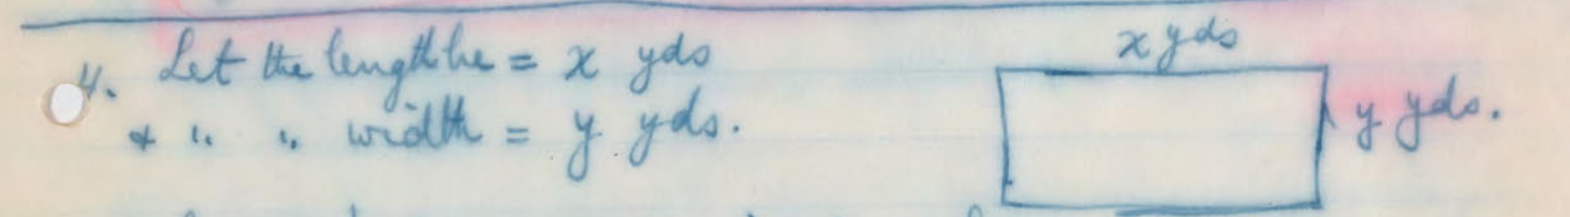 4. Let the length be = x yds
& " " width = y yds.
x yds
y yds.